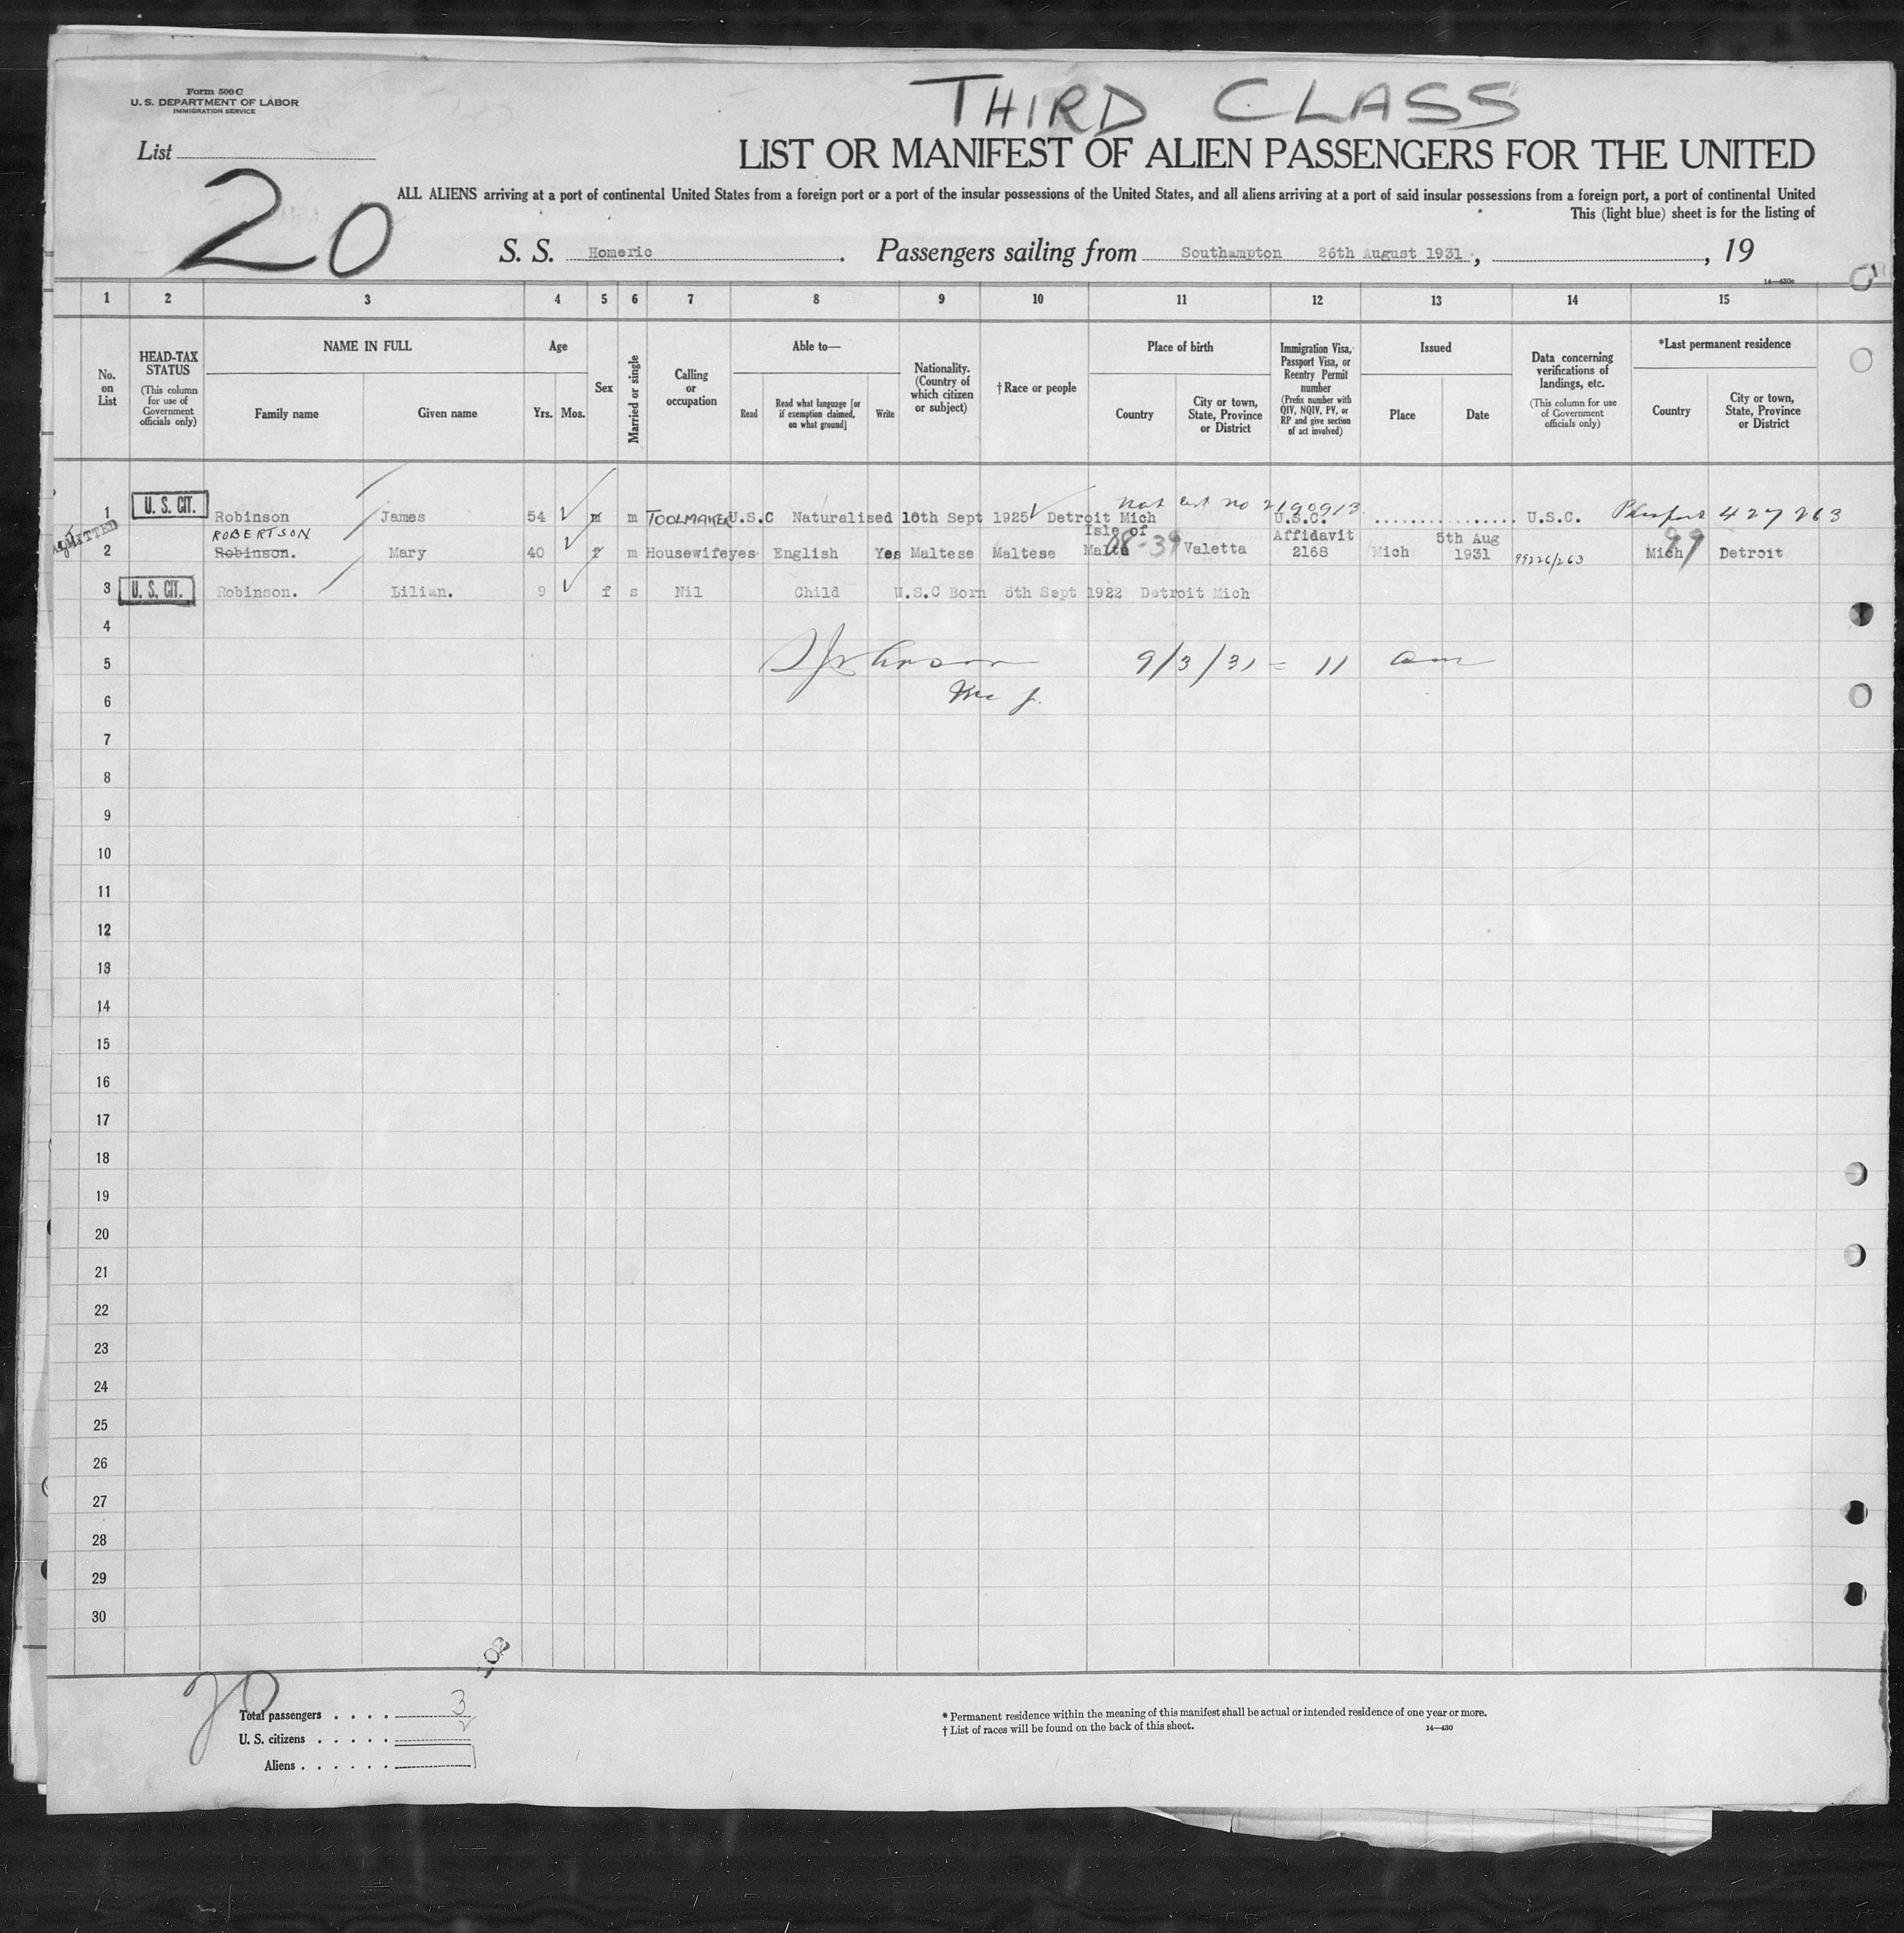 THIRD CLASS
Form 500 C
U. S. DEPARTMENT OF LABOR
IMMIGRATION SERVICE
List
20
LIST OR MANIFEST OF ALIEN PASSENGERS FOR THE UNITED
ALL ALIENS arriving at a port of continental United States from a foreign port or a port of the insular possessions of the United States, and all aliens arriving at a port of said insular possessions from a foreign port, a port of continental United
This (light blue) sheet is for the listing of
S. S. Homeric. Passengers sailing from Southampton 26th August 1931, , 19
14—430c
1 2 3 4 5 6 7 8 9 10 11 12 13 14 15
No. on List
HEAD-TAX STATUS
(This column for use of Government officials only)
NAME IN FULL
Family name Given name
Age
Yrs. Mos.
Sex
Married or single
Calling or occupation
Able to—
Read Read what language [or if exemption claimed, on what ground] Write
Nationality. (Country of which citizen or subject)
†Race or people
Place of birth
Country City or town, State, Province or District
Immigration Visa, Passport Visa, or Reentry Permit number
(Prefix number with QIV, NQIV, PV, or RP and give section of act involved)
Issued
Place Date
Data concerning verifications of landings, etc.
(This column for use of Government officials only)
*Last permanent residence
Country City or town, State, Province or District
Nat no 2190913
1 U. S. CIT. Robinson James 54 m m TOOLMAKER U.S.C Naturalised 10th Sept 1925 Detroit Mich U.S.C. ................ U.S.C. Passport 427263
ADMITTED
ROBERTSON
2 Robinson. Mary 40 f m Housewife yes English Yes Maltese Maltese Isle of Malta 08-39 Valetta Affidavit 2168 Mich 5th Aug 1931 99226/263 Mich 99 Detroit
3 U. S. CIT. Robinson. Lilian. 9 f s Nil Child U.S.C Born 5th Sept 1922 Detroit Mich
4
5 9/3/31 = 11 am
6
7
8
9
10
11
12
13
14
15
16
17
18
19
20
21
22
23
24
25
26
27
28
29
30
20
Total passengers . . . . 3
U. S. citizens . . . . . 2
Aliens . . . . . . 1
* Permanent residence within the meaning of this manifest shall be actual or intended residence of one year or more.
† List of races will be found on the back of this sheet.
14—430